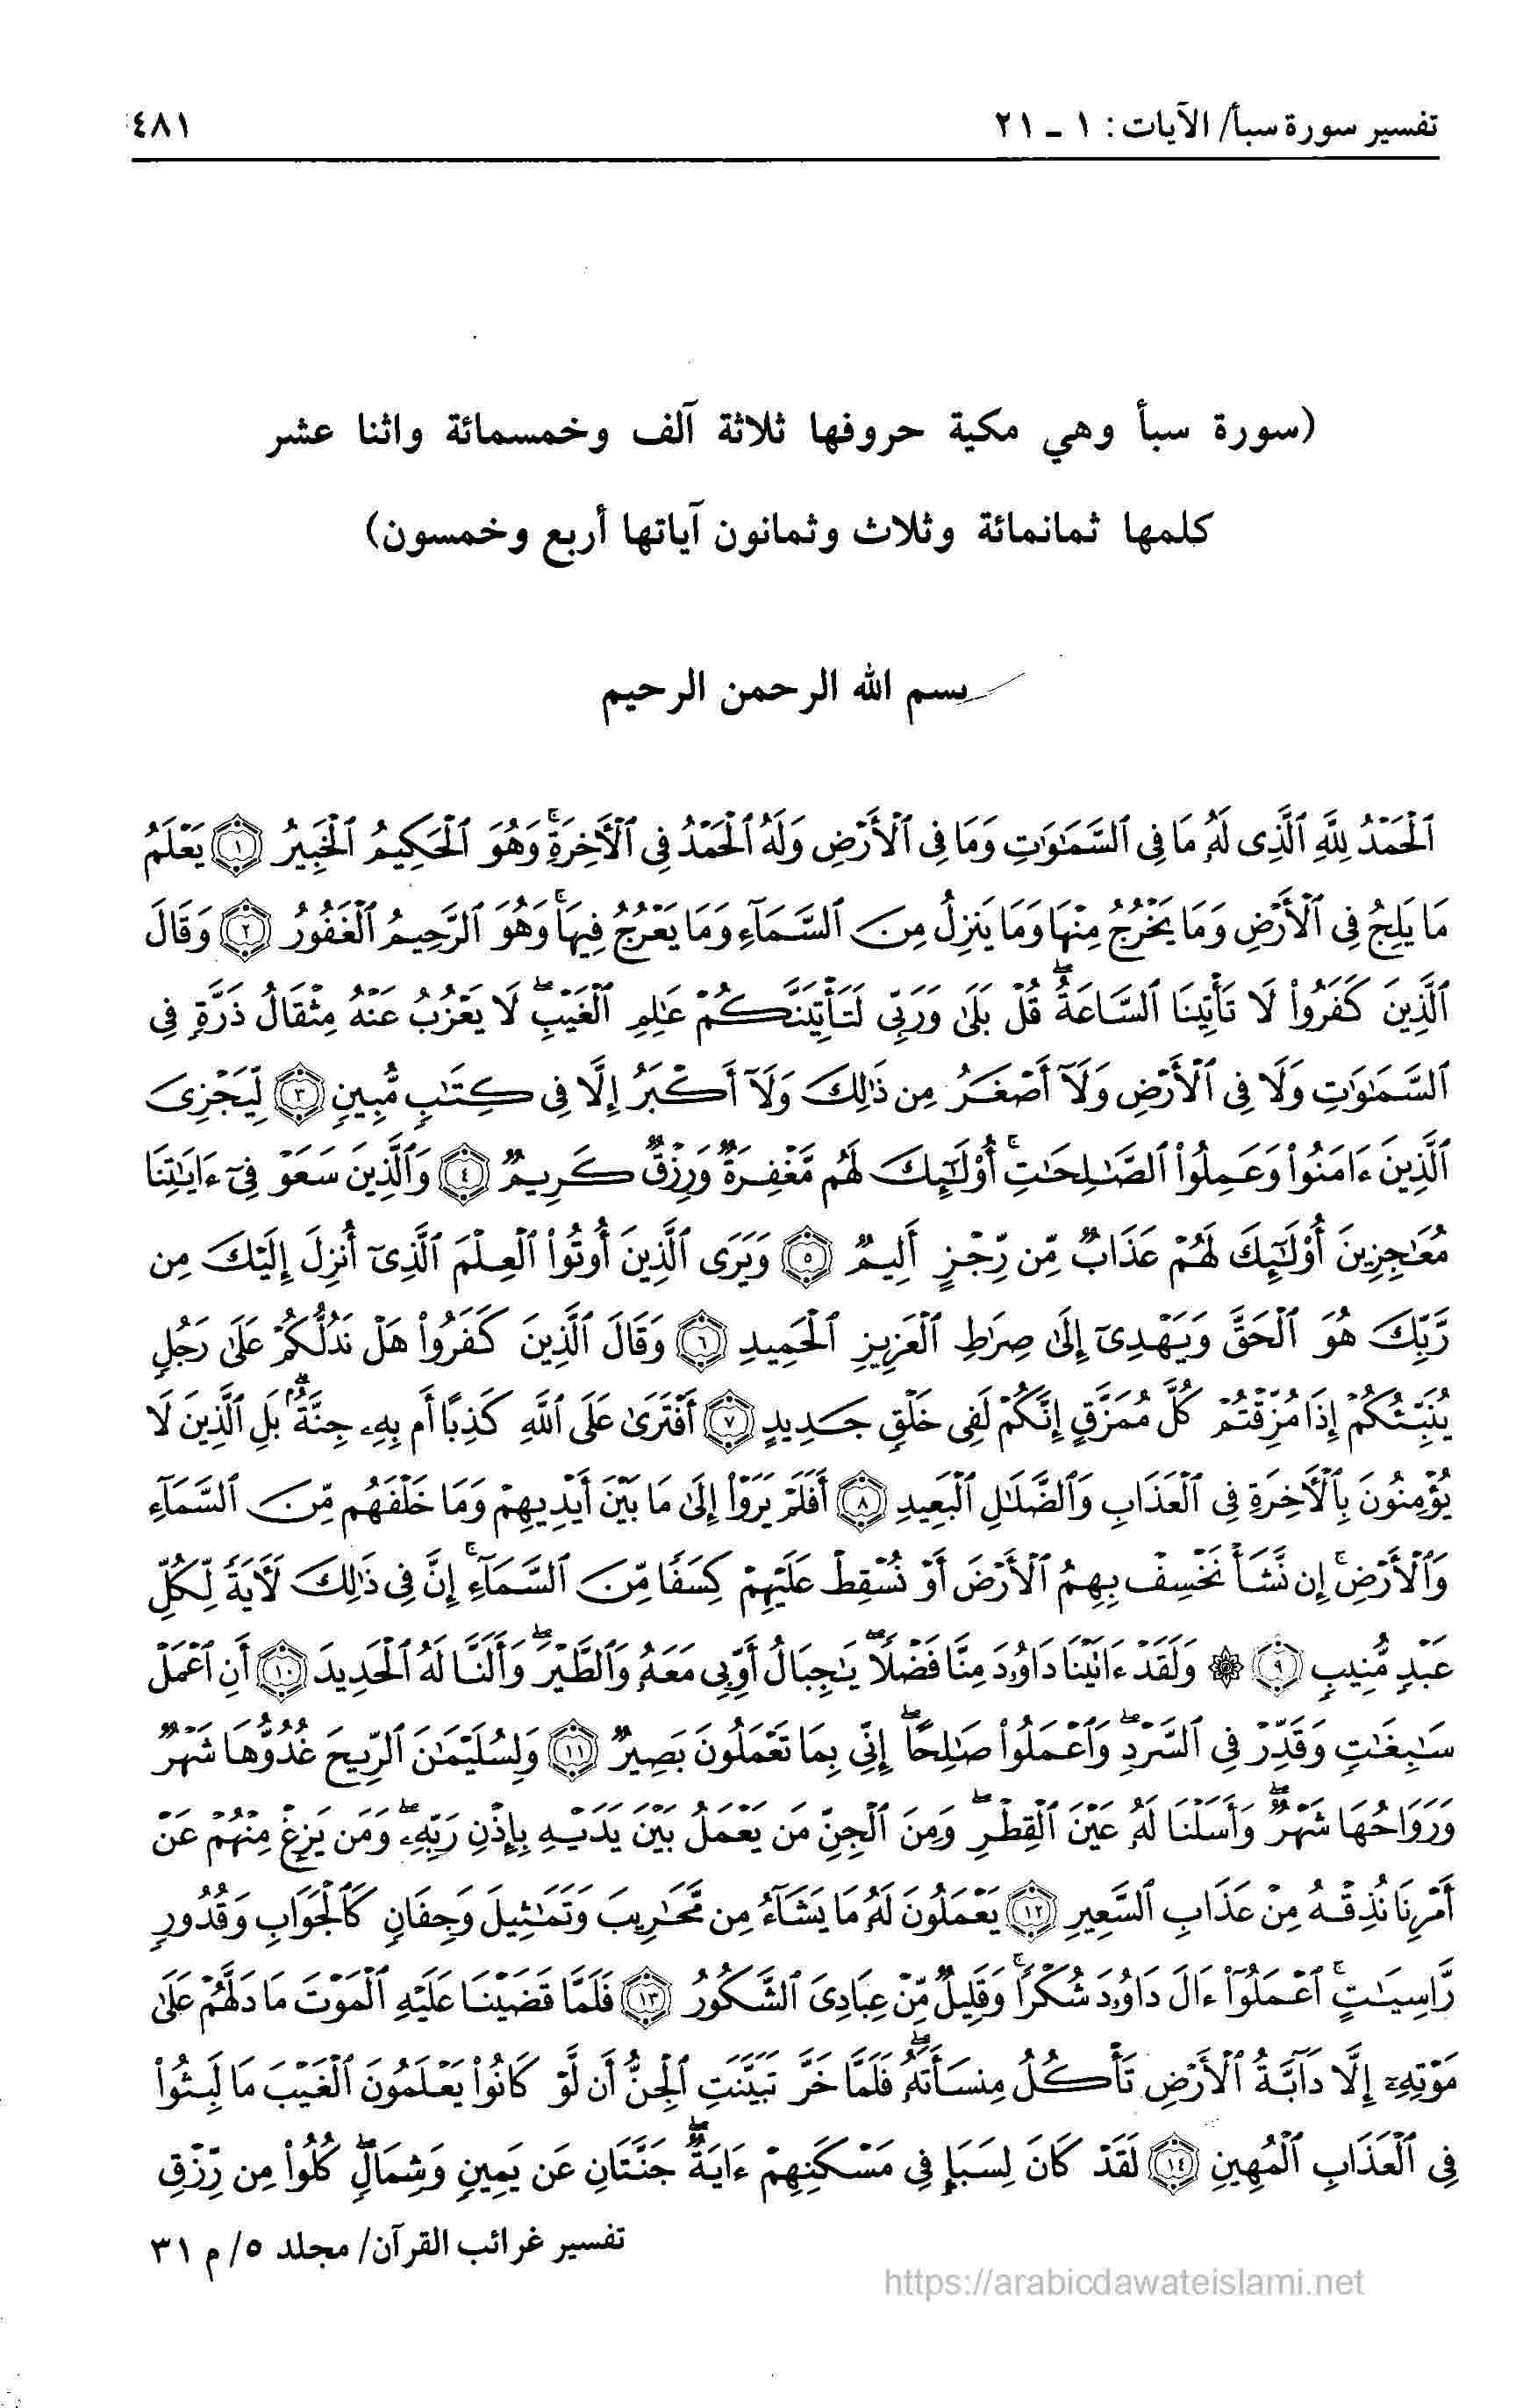 تفسير سورة سبأ/ الآيات: ١ - ٢١
٤٨١
(سورة سبأ وهي مكية حروفها ثلاثة آلف وخمسمائة واثنا عشر
كلمها ثمانمائة وثلاث وثمانون آياتها أربع وخمسون)
بسم الله الرحمن الرحيم
ٱلۡحَمۡدُ لِلَّهِ ٱلَّذِى لَهُۥ مَا فِى ٱلسَّمَٰوَٰتِ وَمَا فِى ٱلۡأَرۡضِ وَلَهُ ٱلۡحَمۡدُ فِى ٱلۡأٓخِرَةِۚ وَهُوَ ٱلۡحَكِيمُ ٱلۡخَبِيرُ ۝١ يَعۡلَمُ
مَا يَلِجُ فِى ٱلۡأَرۡضِ وَمَا يَخۡرُجُ مِنۡهَا وَمَا يَنزِلُ مِنَ ٱلسَّمَآءِ وَمَا يَعۡرُجُ فِيهَاۚ وَهُوَ ٱلرَّحِيمُ ٱلۡغَفُورُ ۝٢ وَقَالَ
ٱلَّذِينَ كَفَرُواْ لَا تَأۡتِينَا ٱلسَّاعَةُۖ قُلۡ بَلَىٰ وَرَبِّى لَتَأۡتِيَنَّكُمۡ عَٰلِمِ ٱلۡغَيۡبِۖ لَا يَعۡزُبُ عَنۡهُ مِثۡقَالُ ذَرَّةٍ فِى
ٱلسَّمَٰوَٰتِ وَلَا فِى ٱلۡأَرۡضِ وَلَآ أَصۡغَرُ مِن ذَٰلِكَ وَلَآ أَكۡبَرُ إِلَّا فِى كِتَٰبٍ مُّبِينٍ ۝٣ لِّيَجۡزِىَ
ٱلَّذِينَ ءَامَنُواْ وَعَمِلُواْ ٱلصَّٰلِحَٰتِۚ أُوْلَٰٓئِكَ لَهُم مَّغۡفِرَةٌ وَرِزۡقٌ كَرِيمٌ ۝٤ وَٱلَّذِينَ سَعَوۡ فِىٓ ءَايَٰتِنَا
مُعَٰجِزِينَ أُوْلَٰٓئِكَ لَهُمۡ عَذَابٌ مِّن رِّجۡزٍ أَلِيمٌ ۝٥ وَيَرَى ٱلَّذِينَ أُوتُواْ ٱلۡعِلۡمَ ٱلَّذِىٓ أُنزِلَ إِلَيۡكَ مِن
رَّبِّكَ هُوَ ٱلۡحَقَّ وَيَهۡدِىٓ إِلَىٰ صِرَٰطِ ٱلۡعَزِيزِ ٱلۡحَمِيدِ ۝٦ وَقَالَ ٱلَّذِينَ كَفَرُواْ هَلۡ نَدُلُّكُمۡ عَلَىٰ رَجُلٍ
يُنَبِّئُكُمۡ إِذَا مُزِّقۡتُمۡ كُلَّ مُمَزَّقٍ إِنَّكُمۡ لَفِى خَلۡقٍ جَدِيدٍ ۝٧ أَفۡتَرَىٰ عَلَى ٱللَّهِ كَذِبًا أَم بِهِۦ جِنَّةٌۗ بَلِ ٱلَّذِينَ لَا
يُؤۡمِنُونَ بِٱلۡأٓخِرَةِ فِى ٱلۡعَذَابِ وَٱلضَّلَٰلِ ٱلۡبَعِيدِ ۝٨ أَفَلَمۡ يَرَوۡاْ إِلَىٰ مَا بَيۡنَ أَيۡدِيهِمۡ وَمَا خَلۡفَهُم مِّنَ ٱلسَّمَآءِ
وَٱلۡأَرۡضِۚ إِن نَّشَأۡ نَخۡسِفۡ بِهِمُ ٱلۡأَرۡضَ أَوۡ نُسۡقِطۡ عَلَيۡهِمۡ كِسَفًا مِّنَ ٱلسَّمَآءِۚ إِنَّ فِى ذَٰلِكَ لَأٓيَةً لِّكُلِّ
عَبۡدٍ مُّنِيبٍ ۝٩ ۞ وَلَقَدۡ ءَاتَيۡنَا دَاوُۥدَ مِنَّا فَضۡلًاۖ يَٰجِبَالُ أَوِّبِى مَعَهُۥ وَٱلطَّيۡرَۖ وَأَلَنَّا لَهُ ٱلۡحَدِيدَ ۝١٠ أَنِ ٱعۡمَلۡ
سَٰبِغَٰتٍ وَقَدِّرۡ فِى ٱلسَّرۡدِۖ وَٱعۡمَلُواْ صَٰلِحًاۖ إِنِّى بِمَا تَعۡمَلُونَ بَصِيرٌ ۝١١ وَلِسُلَيۡمَٰنَ ٱلرِّيحَ غُدُوُّهَا شَهۡرٌ
وَرَوَاحُهَا شَهۡرٌۖ وَأَسَلۡنَا لَهُۥ عَيۡنَ ٱلۡقِطۡرِۖ وَمِنَ ٱلۡجِنِّ مَن يَعۡمَلُ بَيۡنَ يَدَيۡهِ بِإِذۡنِ رَبِّهِۦۖ وَمَن يَزِغۡ مِنۡهُمۡ عَنۡ
أَمۡرِنَا نُذِقۡهُ مِنۡ عَذَابِ ٱلسَّعِيرِ ۝١٢ يَعۡمَلُونَ لَهُۥ مَا يَشَآءُ مِن مَّحَٰرِيبَ وَتَمَٰثِيلَ وَجِفَانٍ كَٱلۡجَوَابِ وَقُدُورٍ
رَّاسِيَٰتٍۚ ٱعۡمَلُوٓاْ ءَالَ دَاوُۥدَ شُكۡرًاۚ وَقَلِيلٌ مِّنۡ عِبَادِىَ ٱلشَّكُورُ ۝١٣ فَلَمَّا قَضَيۡنَا عَلَيۡهِ ٱلۡمَوۡتَ مَا دَلَّهُمۡ عَلَىٰ
مَوۡتِهِۦٓ إِلَّا دَآبَّةُ ٱلۡأَرۡضِ تَأۡكُلُ مِنسَأَتَهُۥۖ فَلَمَّا خَرَّ تَبَيَّنَتِ ٱلۡجِنُّ أَن لَّوۡ كَانُواْ يَعۡلَمُونَ ٱلۡغَيۡبَ مَا لَبِثُواْ
فِى ٱلۡعَذَابِ ٱلۡمُهِينِ ۝١٤ لَقَدۡ كَانَ لِسَبَإٍ فِى مَسۡكَنِهِمۡ ءَايَةٌۖ جَنَّتَانِ عَن يَمِينٍ وَشِمَالٍۖ كُلُواْ مِن رِّزۡقِ
تفسير غرائب القرآن/ مجلد ٥/ م ٣١
https://arabicdawateislami.net